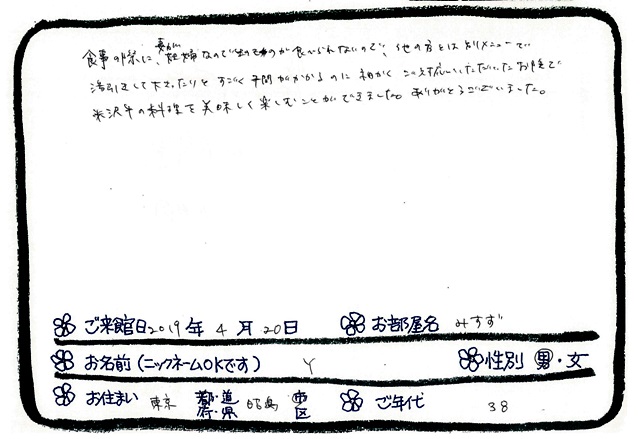 食事の際に、妻が妊婦なので生ものが食べられないので、他の方とは別メニューで
湯引きして下さったりとすごく手間がかかるのに細かくご対応いただいたお陰で
米沢牛の料理を美味しく楽しむことができました。ありがとうございました。
ご来館日 2019 年 4 月 20 日 お部屋名 みすず
お名前(ニックネームOKです) Y 性別 男・女
お住まい 東京 都・道 府・県 昭島 市 区 ご年代 38